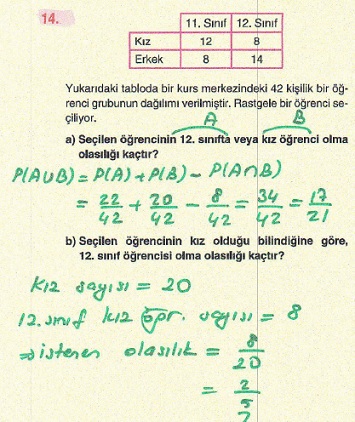 14.
11. Sınıf 12. Sınıf
Kız 12 8
Erkek 8 14
Yukarıdaki tabloda bir kurs merkezindeki 42 kişilik bir öğ-
renci grubunun dağılımı verilmiştir. Rastgele bir öğrenci se-
çiliyor.
A B
a) Seçilen öğrencinin 12. sınıfta veya kız öğrenci olma
olasılığı kaçtır?
P(A∪B) = P(A) + P(B) - P(A∩B)
= 22/42 + 20/42 - 8/42 = 34/42 = 17/21
b) Seçilen öğrencinin kız olduğu bilindiğine göre,
12. sınıf öğrencisi olma olasılığı kaçtır?
Kız sayısı = 20
12. sınıf kız öğr. sayısı = 8
⇒ istenen olasılık = 8/20
= 2/5